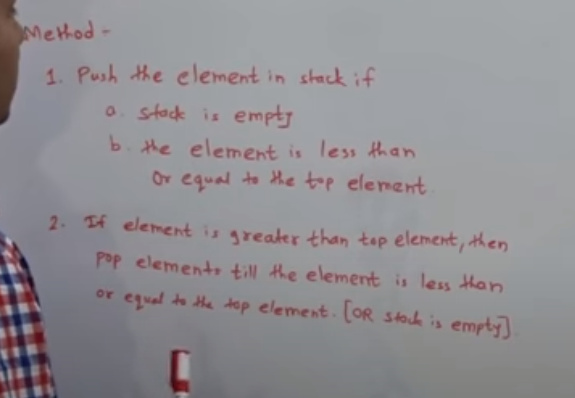 Method -
1. Push the element in stack if
a. stack is empty
b. the element is less than
Or equal to the top element.
2. If element is greater than top element, then
pop elements till the element is less than
or equal to the top element. [OR stack is empty].